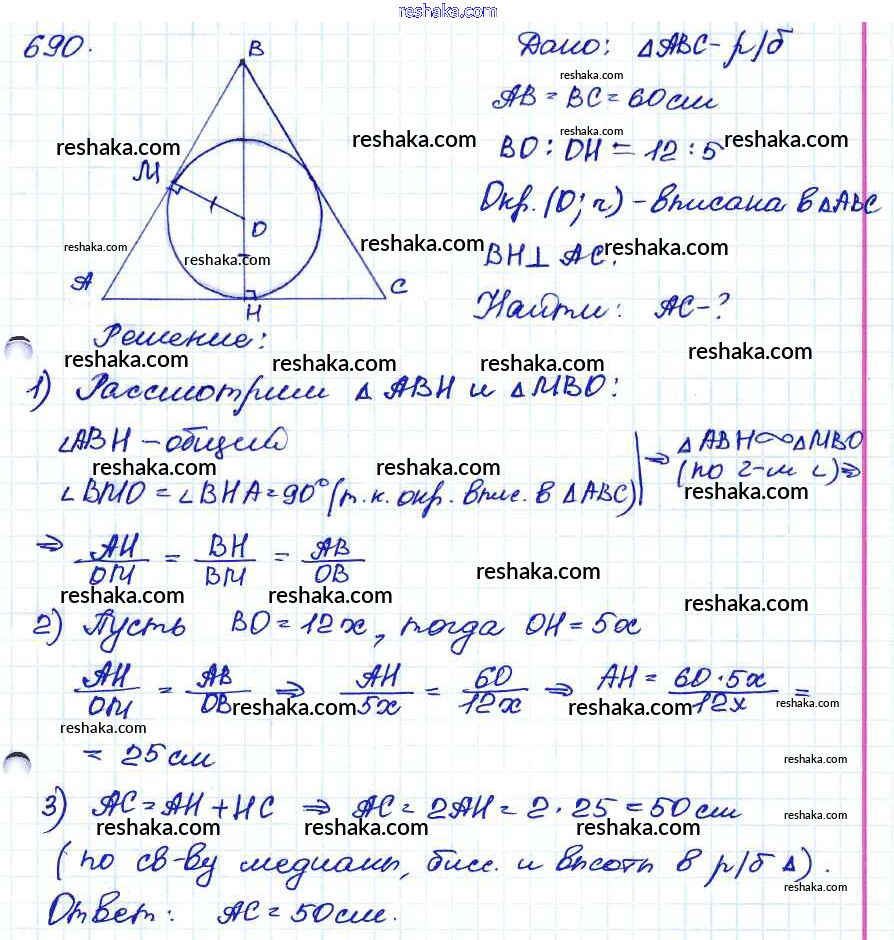 reshaka.com
690.
B
M
O
A
C
H
Дано: △ABC - р/б
reshaka.com
AB = BC = 60 см
reshaka.com
reshaka.com
reshaka.com
reshaka.com
BO : OH = 12 : 5
Окр. (O; r) - вписана в △ABC
reshaka.com
reshaka.com
reshaka.com
reshaka.com
BH ⊥ AC.
Найти: AC - ?
Решение:
reshaka.com
reshaka.com
reshaka.com
reshaka.com
1) Рассмотрим △ABH и △MBO:
∠ABH - общий
reshaka.com
reshaka.com
∠BMO = ∠BHA = 90° (т.к. окр. впис. в △ABC)
⇒ △ABH ∞ △MBO
(по 2-м ∠) ⇒
reshaka.com
⇒ AH/OM = BH/BM = AB/OB
reshaka.com
reshaka.com
reshaka.com
reshaka.com
2) Пусть BO = 12x, тогда OH = 5x
AH/OM = AB/OB ⇒ AH/5x = 60/12x ⇒ AH = 60·5x/12x =
reshaka.com
reshaka.com
reshaka.com
reshaka.com
= 25 см
reshaka.com
3) AC = AH + HC ⇒ AC = 2AH = 2·25 = 50 см
reshaka.com
reshaka.com
reshaka.com
reshaka.com
(по св-ву медианы, бисс. и высоты в р/б △).
reshaka.com
Ответ: AC = 50 см.